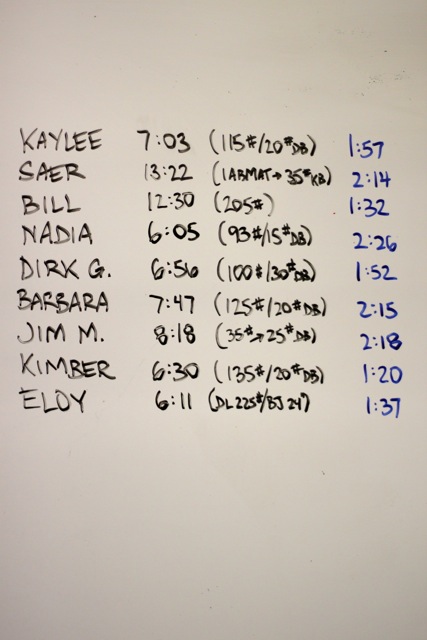 KAYLEE 7:03 (115#/20#DB) 1:57
SAER 13:22 (1ABMAT→35#KB) 2:14
BILL 12:30 (205#) 1:32
NADIA 6:05 (93#/15#DB) 2:26
DIRK G. 6:56 (100#/30#DB) 1:52
BARBARA 7:47 (125#/20#DB) 2:15
JIM M. 8:18 (35#→25#DB) 2:18
KIMBER 6:30 (135#/20#DB) 1:20
ELOY 6:11 (DL 225#/BJ 24") 1:37